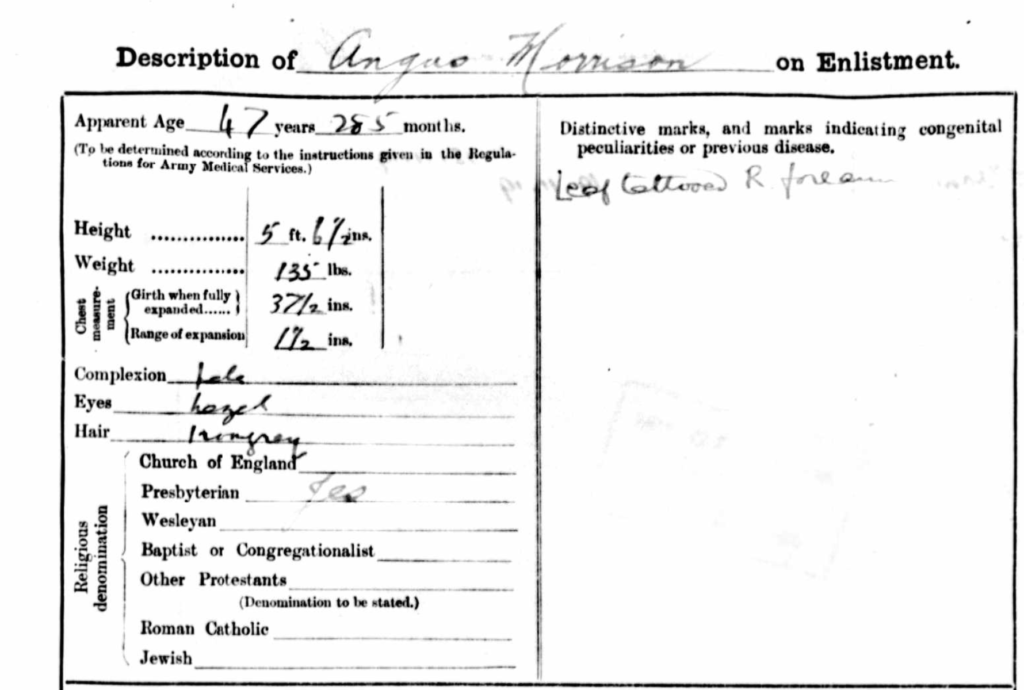 Description of Angus Morrison on Enlistment.
Apparent Age 47 years 285 months.
(To be determined according to the instructions given in the Regula-
tions for Army Medical Services.)
Height ............... 5 ft. 6 1/2 ins.
Weight ............... 135 lbs.
Chest measure-ment
Girth when fully
expanded...... 37 1/2 ins.
Range of expansion 1 1/2 ins.
Complexion pale
Eyes hazel
Hair Irongrey
Religious denomination
Church of England
Presbyterian Yes
Wesleyan
Baptist or Congregationalist
Other Protestants
(Denomination to be stated.)
Roman Catholic
Jewish
Distinctive marks, and marks indicating congenital
peculiarities or previous disease.
Leaf tattooed R. forearm